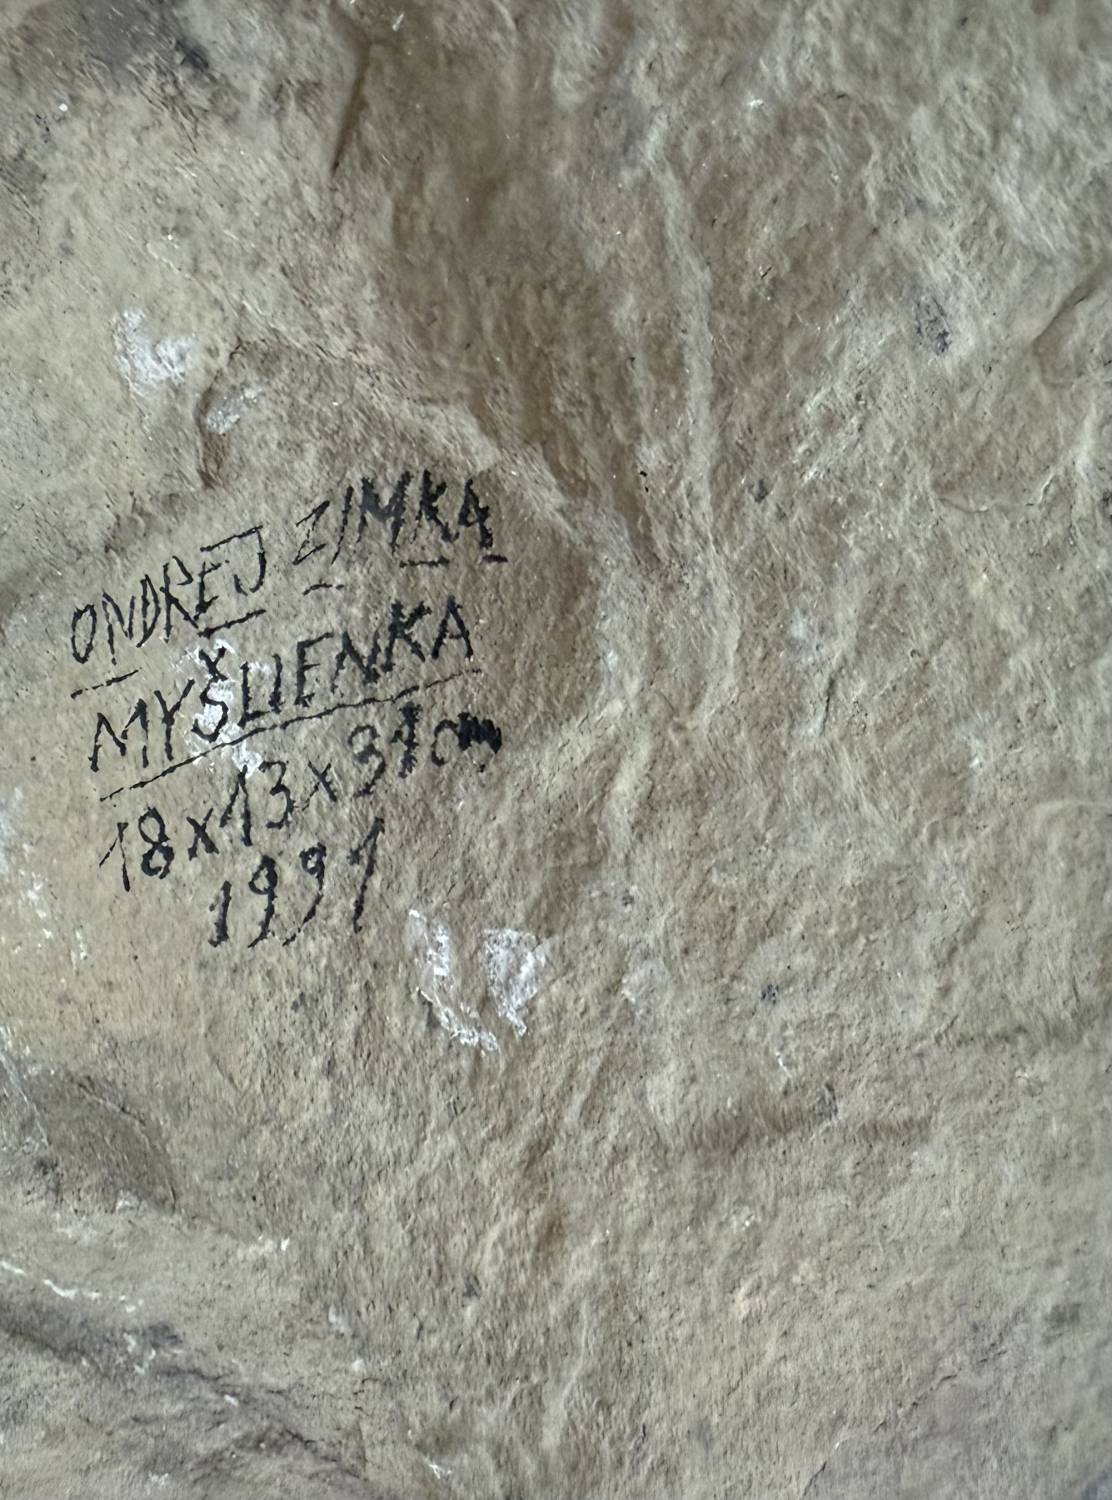 ONDREJ ZIMKA
MYŠLIENKA
18x13x31cm
1991